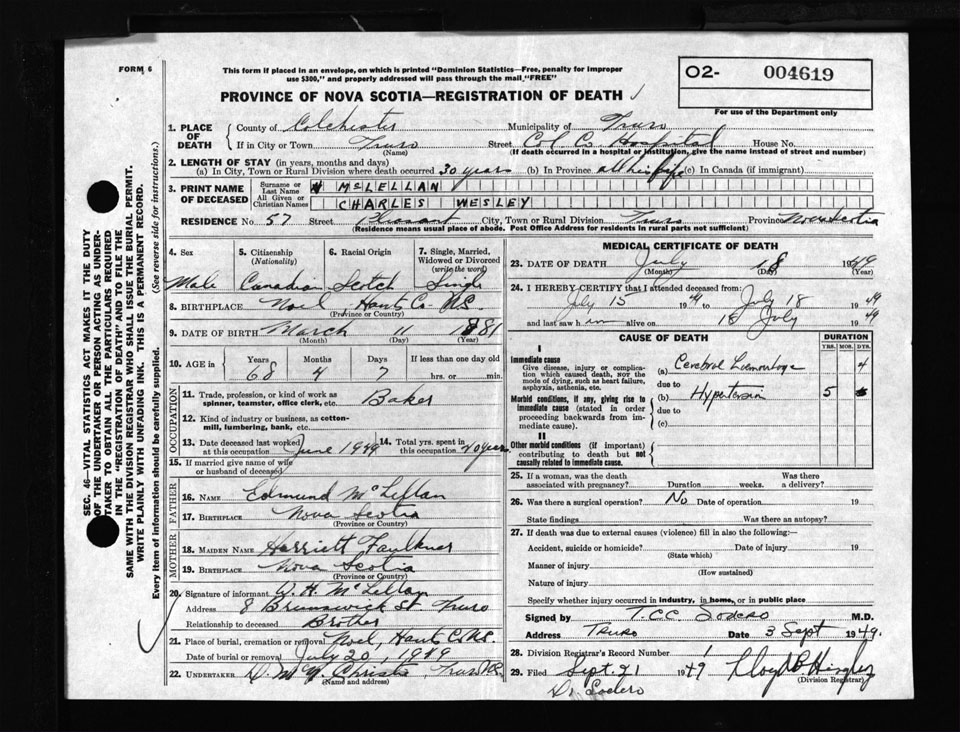 FORM 6
This form if placed in an envelope, on which is printed "Dominion Statistics—Free, penalty for improper
use $300," and properly addressed will pass through the mail "FREE"
O2- 004619
For use of the Department only
PROVINCE OF NOVA SCOTIA—REGISTRATION OF DEATH
SEC. 46—VITAL STATISTICS ACT MAKES IT THE DUTY
OF THE UNDERTAKER OR PERSON ACTING AS UNDER-
TAKER TO OBTAIN ALL THE PARTICULARS REQUIRED
IN THE "REGISTRATION OF DEATH" AND TO FILE THE
SAME WITH THE DIVISION REGISTRAR WHO SHALL ISSUE THE BURIAL PERMIT.
WRITE PLAINLY WITH UNFADING INK. THIS IS A PERMANENT RECORD.
Every item of information should be carefully supplied. (See reverse side for instructions.)
1. PLACE OF DEATH County of Colchester Municipality of Truro
If in City or Town Truro (Name) Street Col. Co. Hospital House No.
(If death occurred in a hospital or institution, give the name instead of street and number)
2. LENGTH OF STAY (in years, months and days)
(a) In City, Town or Rural Division where death occurred 30 years (b) In Province all his life (c) In Canada (if immigrant)
3. PRINT NAME OF DECEASED Surname or Last Name McLELLAN
All Given or Christian Names CHARLES WESLEY
RESIDENCE No. 57 Street Pleasant City, Town or Rural Division Truro Province Nova Scotia
(Residence means usual place of abode. Post Office Address for residents in rural parts not sufficient)
4. Sex 5. Citizenship (Nationality) 6. Racial Origin 7. Single, Married, Widowed or Divorced (write the word)
Male Canadian Scotch Single
8. BIRTHPLACE Noel Hants Co. N.S.
(Province or Country)
9. DATE OF BIRTH March 11 1881
(Month) (Day) (Year)
10. AGE in Years Months Days If less than one day old
68 4 7 hrs. or min.
OCCUPATION
11. Trade, profession, or kind of work as spinner, teamster, office clerk, etc. Baker
12. Kind of industry or business, as cotton-mill, lumbering, bank, etc.
13. Date deceased last worked at this occupation June 1949 14. Total yrs. spent in this occupation 40 years
15. If married give name of wife or husband of deceased
FATHER
16. NAME Edmund McLellan
17. BIRTHPLACE Nova Scotia
(Province or Country)
MOTHER
18. MAIDEN NAME Harriett Faulkner
19. BIRTHPLACE Nova Scotia
(Province or Country)
20. Signature of informant McLellan
Address 8 Brunswick St. Truro
Relationship to deceased Brother
21. Place of burial, cremation or removal Noel, Hants Co. N.S.
Date of burial or removal July 20, 1949
22. UNDERTAKER Christie, Truro N.S.
(Name and address)
MEDICAL CERTIFICATE OF DEATH
23. DATE OF DEATH July 18 1949
(Month) (Day) (Year)
24. I HEREBY CERTIFY that I attended deceased from:
July 15 1949 to July 18 1949
and last saw him alive on 18 July 1949
CAUSE OF DEATH DURATION
YRS. MOS. DYS.
I
Immediate cause
Give disease, injury or complication which caused death, NOT the mode of dying, such as heart failure, asphyxia, asthenia, etc.
(a) Cerebral Haemorrhage 4
due to
Morbid conditions, if any, giving rise to immediate cause (stated in order proceeding backwards from immediate cause).
(b) Hypertension 5
due to
(c)
II
Other morbid conditions (if important) contributing to death but not causally related to immediate cause.
25. If a woman, was the death associated with pregnancy? Duration weeks. Was there a delivery?
26. Was there a surgical operation? No Date of operation 19
State findings Was there an autopsy?
27. If death was due to external causes (violence) fill in also the following:—
Accident, suicide or homicide? (State which) Date of injury 19
Manner of injury
(How sustained)
Nature of injury
Specify whether injury occurred in industry, in home, or in public place
Signed by T.C.C. Sodero M.D.
Address Truro Date 3 Sept 1949.
28. Division Registrar's Record Number
29. Filed Sept. 21 1949 Lloyd
(Division Registrar)
Dr. Sodero